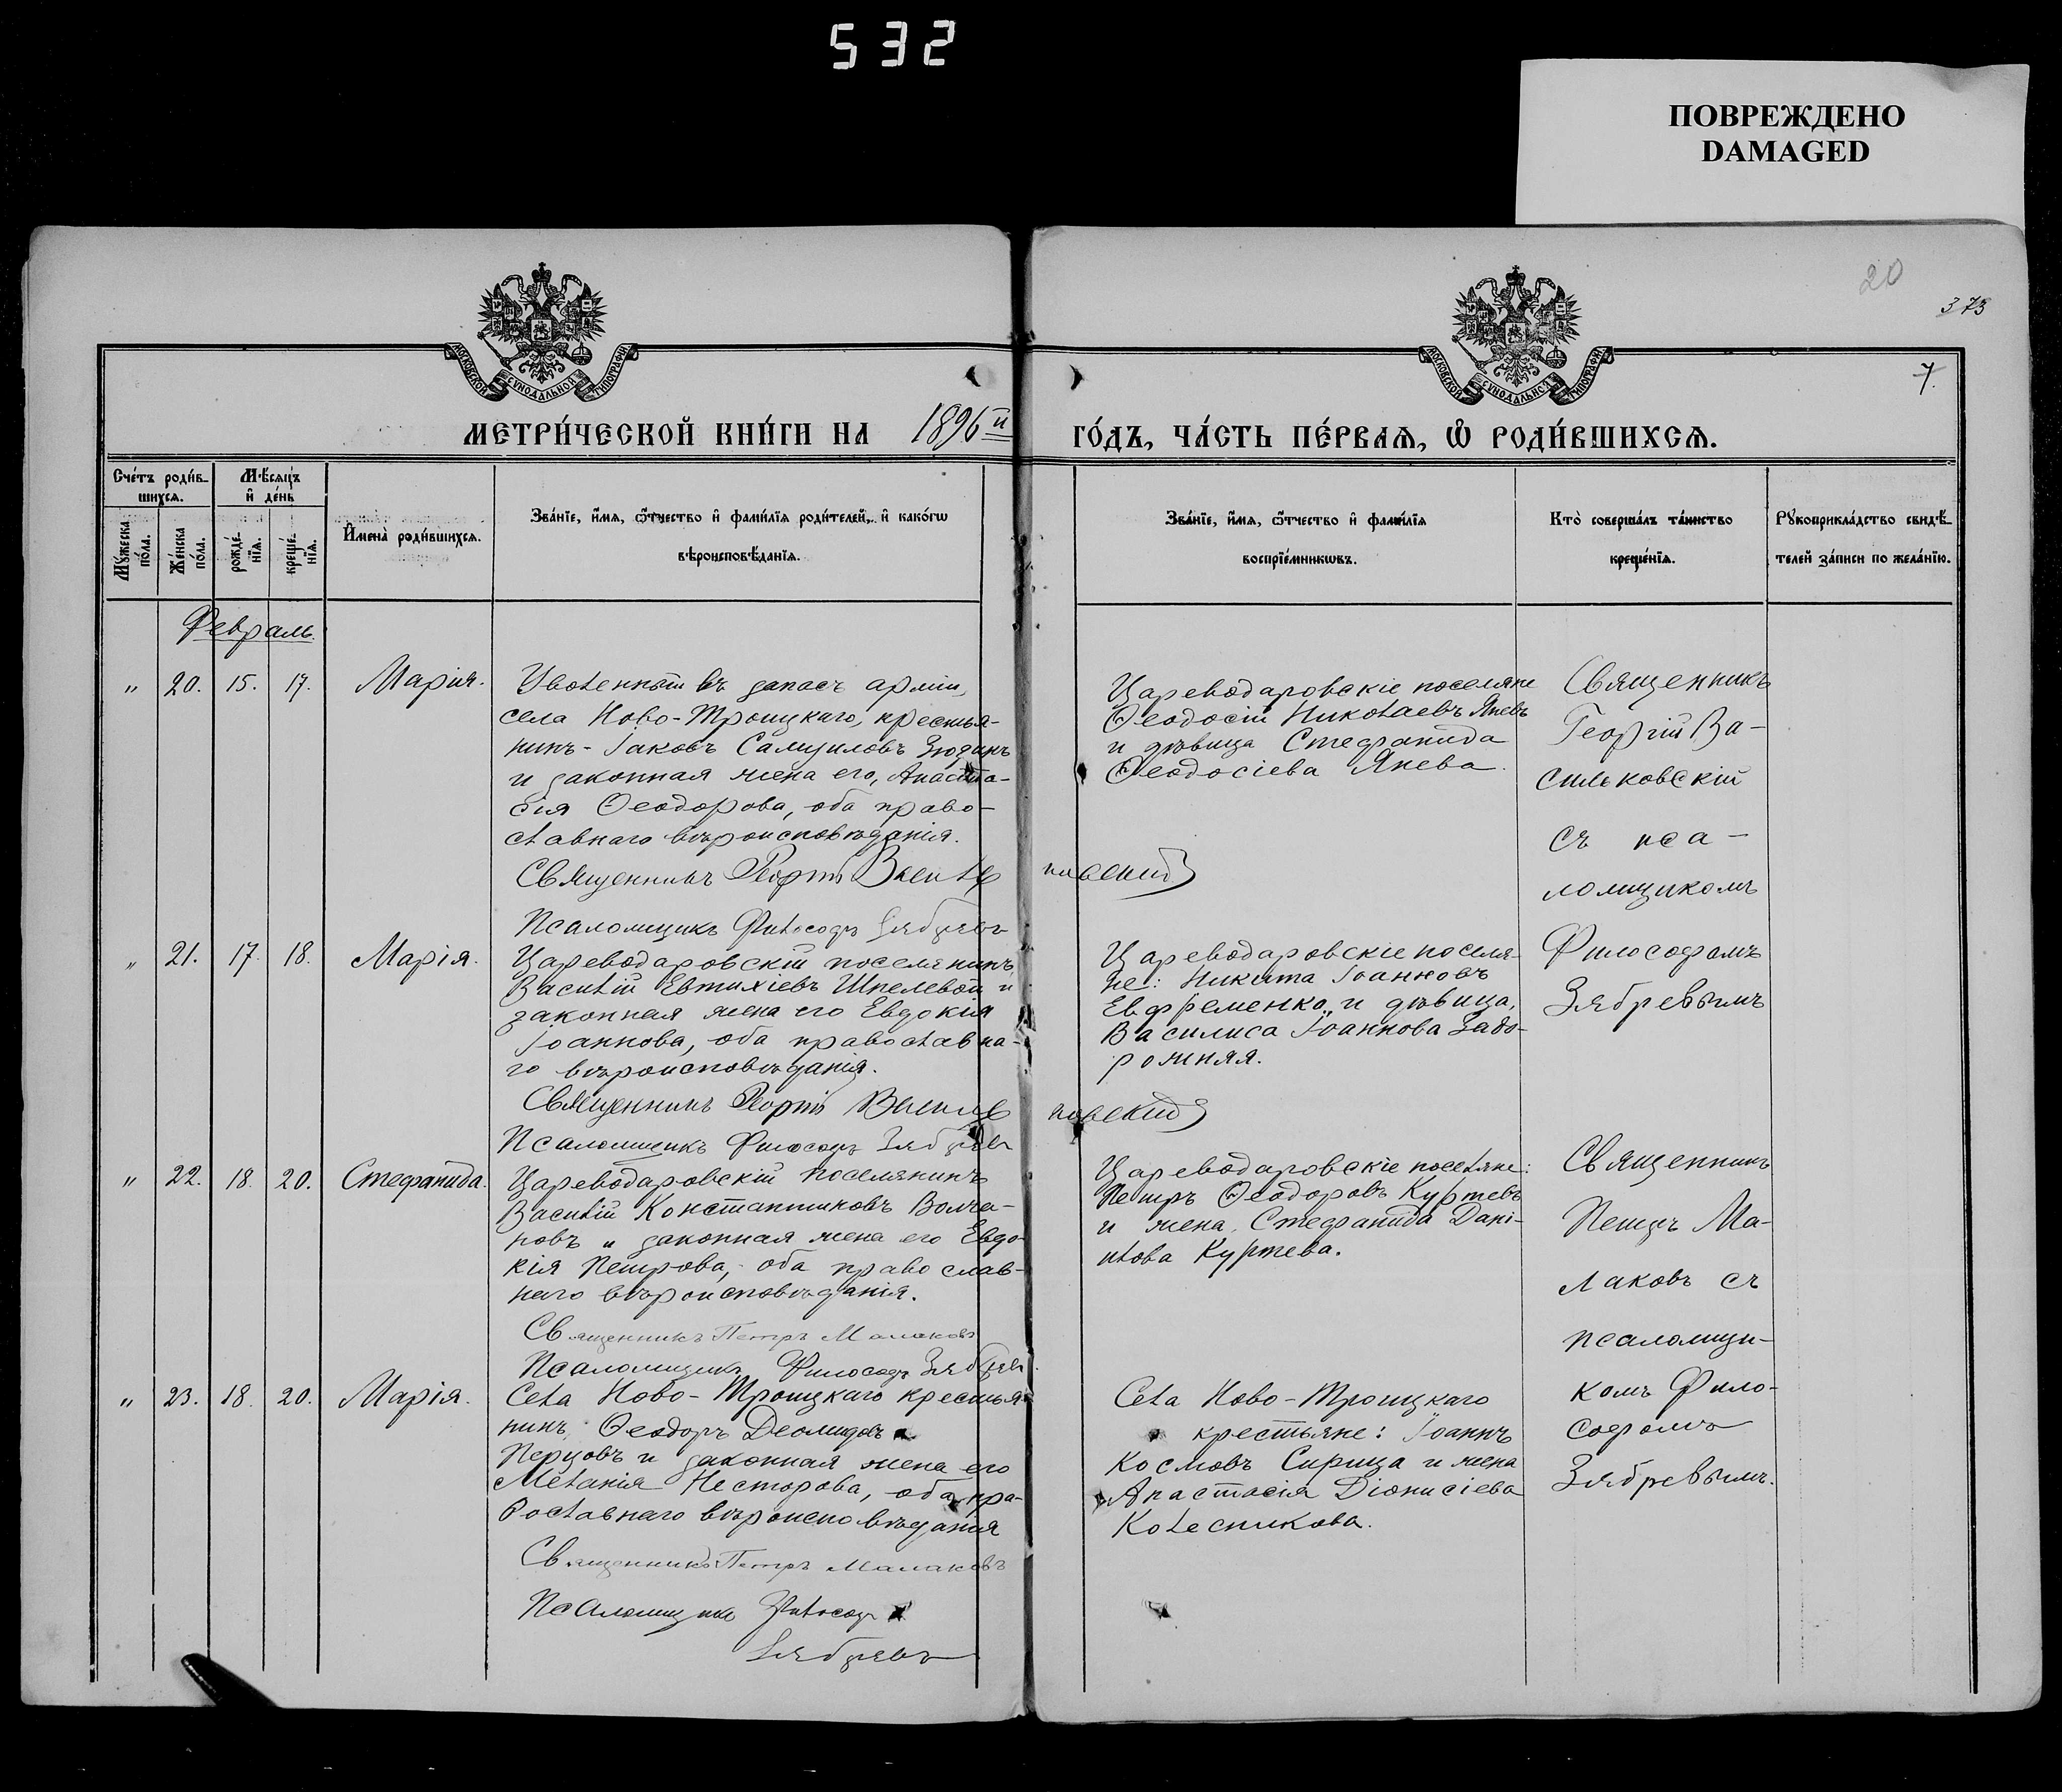 532
ПОВРЕЖДЕНО
DAMAGED
20
373
7.
МОСКОВСКОЙ СУНОДАЛЬНОЙ ТИПОГРАФІИ
МОСКОВСКОЙ СУНОДАЛЬНОЙ ТИПОГРАФІИ
МЕТРИ́ЧЕСКОЙ КНИ́ГИ НА 1896й ГО́ДЪ, ЧА́СТЬ ПЕ́РВАѦ, Ѽ РОДИ́ВШИХСѦ.
Сче́тъ роди́в-
шихсѧ.
Мꙋ́жеска по́ла.
Же́нска по́ла.
Мѣ́сѧцъ
и҆ де́нь
рожде́-нїѧ.
креще́-нїѧ.
И҆мена̀ роди́вшихсѧ.
Зва́нїе, и҆́мѧ, ѻ҆́тчество и҆ фами́лїѧ роди́телей, и҆ како́гѡ
вѣроисповѣ́данїѧ.
Зва́нїе, и҆́мѧ, ѻ҆́тчество и҆ фами́лїѧ
воспрїе́мникѡвъ.
Кто̀ соверша́лъ та́инство
креще́нїѧ.
Рꙋкоприкла́дство свидѣ́-
телей за́писи по жела́нїю.
Февраль.
" 20. 15. 17. Марія.
Уволенный въ запасъ арміи,
села Ново-Троицкаго, крестья-
нинъ - Іаковъ Самуиловъ Зюдинъ
и законная жена его, Анаста-
сія Ѳеодорова, оба право-
славнаго вѣроисповѣданія.
Священникъ Георгій Васильковскій
Псаломщикъ Философъ Зябревъ
Цареводаровскіе поселяне
Ѳеодосій Николаевъ Яневъ
и дѣвица Стефанида
Ѳеодосіева Янева.
Священникъ
Георгій Ва-
сильковскій
съ пса-
ломщикомъ
Философомъ
Зябревымъ
" 21. 17. 18. Марія.
Цареводаровскій поселянинъ
Василій Евтихіевъ Шпелевой и
законная жена его Евдокія
Іоаннова, оба православна-
го вѣроисповѣданія.
Священникъ Георгій Васильковскій
Псаломщикъ Философъ Зябревъ
Цареводаровскіе поселя-
не: Никита Іоанновъ
Евфременко и дѣвица,
Василиса Іоаннова Задо-
рожняя.
" 22. 18. 20. Стефанида.
Цареводаровскій поселянинъ
Василій Константиновъ Волча-
новъ и законная жена его Евдо-
кія Петрова, оба православ-
наго вѣроисповѣданія.
Священникъ Петръ Малаковъ
Псаломщикъ Философъ Зябревъ.
Цареводаровскіе поселяне:
Петръ Ѳеодоровъ Куртевъ
и жена Стефанида Дані-
илова Куртева.
Священникъ
Петръ Ма-
лаковъ съ
псаломщи-
комъ Фило-
софомъ
Зябревымъ.
" 23. 18. 20. Марія.
Села Ново-Троицкаго крестья-
нинъ, Ѳеодоръ Деомидовъ
Перцовъ и законная жена его
Меланія Несторова, оба пра-
вославнаго вѣроисповѣданія
Священникъ Петръ Малаковъ
Псаломщикъ Философъ
Зябревъ
Села Ново-Троицкаго
крестьяне: Іоаннъ
Космовъ Сирица и жена
Анастасія Діонисіева
Колесникова.